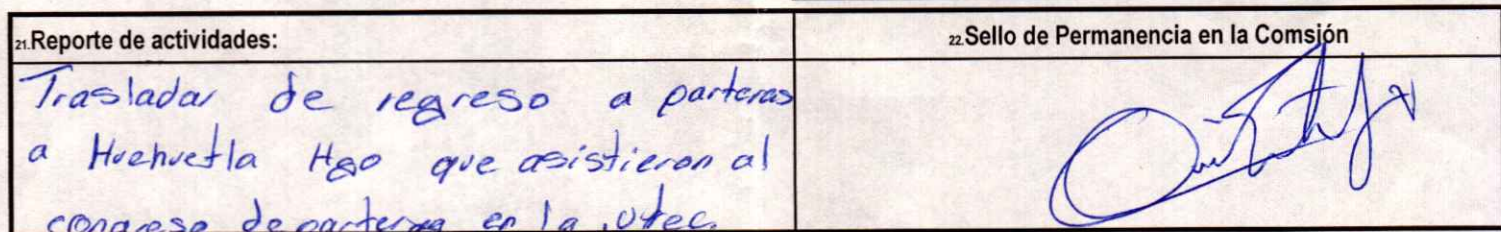 21.Reporte de actividades:
22.Sello de Permanencia en la Comsión
Trasladar de regreso a parteras
a Huehuetla Hgo que asistieron al
congreso de parteras en la utec.